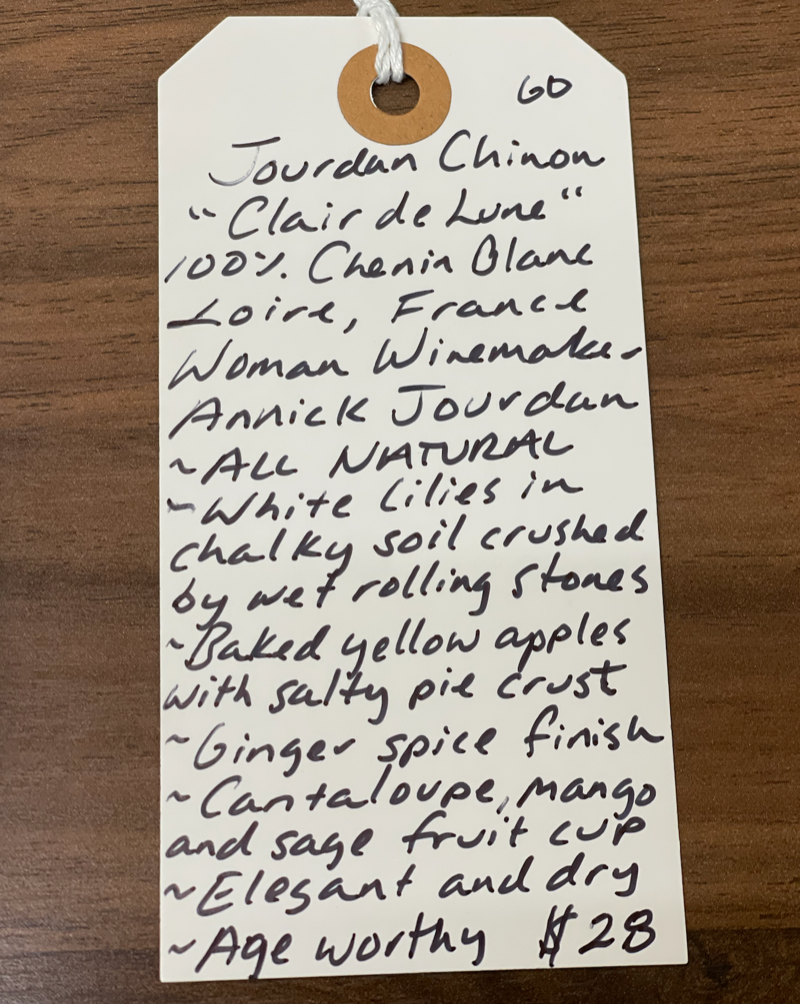 GO
Jourdan Chinon
"Clair de Lune"
100% Chenin Blanc
Loire, France
Woman Winemaker
Annick Jourdan
~ALL NATURAL
~White lilies in
chalky soil crushed
by wet rolling stones
~Baked yellow apples
with salty pie crust
~Ginger spice finish
~Cantaloupe, mango
and sage fruit cup
~Elegant and dry
~Age worthy $28